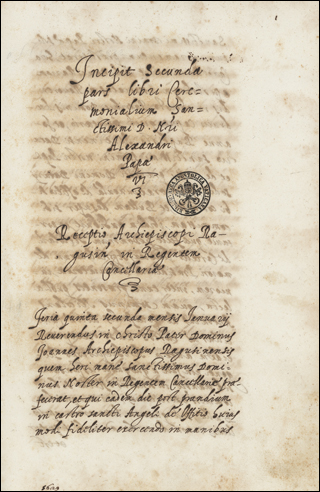 1
Incipit Secunda
pars libri Cere=
monialium San=
ctissimi D. Nri
Alexandri
Papæ
VI
Receptio Archiepiscopi Ra=
gusin, in Regentem
Cancellariæ
Feria quinta secunda mensis Januarij
Reverendus in Christo Pater Dominus
Joannes Archiepiscopus Ragusinensis
quem heri mane Sanctissimus Domi=
nus Noster in Regentem Cancellariæ prę
fecerat, et qui eadem die post prandium
in castro sancti Angeli de Offitio huius
modi fideliter exercendo in manibus